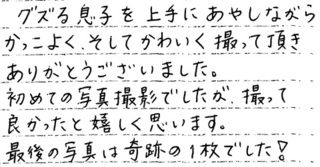 グズる息子を上手にあやしながら
かっこよく、そしてかわいく撮って頂き
ありがとうございました。
初めての写真撮影でしたが、撮って
良かったと嬉しく思います。
最後の写真は奇跡の1枚でした!